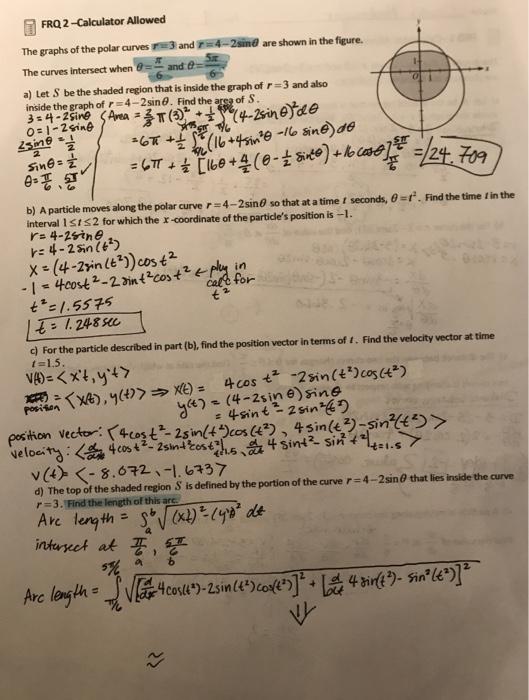 FRQ 2 –Calculator Allowed
The graphs of the polar curves r = 3 and r = 4 – 2sinθ are shown in the figure.
The curves intersect when θ = π/6 and θ = 5π/6.
a) Let S be the shaded region that is inside the graph of r = 3 and also
inside the graph of r = 4 – 2sinθ. Find the area of S.
3 = 4 - 2sinθ
0 = 1 - 2sinθ
2sinθ/2 = 1/2
sinθ = 1/2
θ = π/6, 5π/6 ✓
Area = 2/3 π(3)² + 1/2 ∫ (4-2sinθ)² dθ
= 6π + 1/2 ∫ (16 + 4sin²θ - 16 sinθ) dθ
= 6π + 1/2 [16θ + 4/2 (θ - 1/2 sin2θ) + 16 cosθ] = 24.709
b) A particle moves along the polar curve r = 4 – 2sinθ so that at a time t seconds, θ = t². Find the time t in the
interval 1 ≤ t ≤ 2 for which the x-coordinate of the particle's position is –1.
r = 4 - 2sinθ
r = 4 - 2 sin(t²)
x = (4 - 2sin(t²)) cos t²
-1 = 4cost² - 2sint²cost² ← plug in calc for t²
t² = 1.5575
t = 1.248 sec
c) For the particle described in part (b), find the position vector in terms of t. Find the velocity vector at time
t = 1.5.
V(t) = <x't, y't>
position = <x(t), y(t)> ⇒ x(t) = 4 cos t² - 2sin(t²)cos(t²)
y(t) = (4 - 2sinθ) sinθ
= 4sint² - 2sin²(t²)
position vector: <4cost² - 2sin(t²)cos(t²), 4sin(t²) - sin²(t²)>
velocity: <d/dt 4cost² - 2sint²cost²|t=1.5, d/dt 4 sint² - sin² t²|t=1.5>
v(t) = <-8.072, -1.673>
d) The top of the shaded region S is defined by the portion of the curve r = 4 – 2sinθ that lies inside the curve
r = 3. Find the length of this arc.
Arc length = ∫ᵇₐ √(x't)² - (y't)² dt
intersect at π/6, 5π/6
a b
Arc length = ∫ √[d/dt 4cos(t²) - 2sin(t²)cos(t²)]² + [d/dt 4 sin(t²) - sin²(t²)]²
⇓
≈